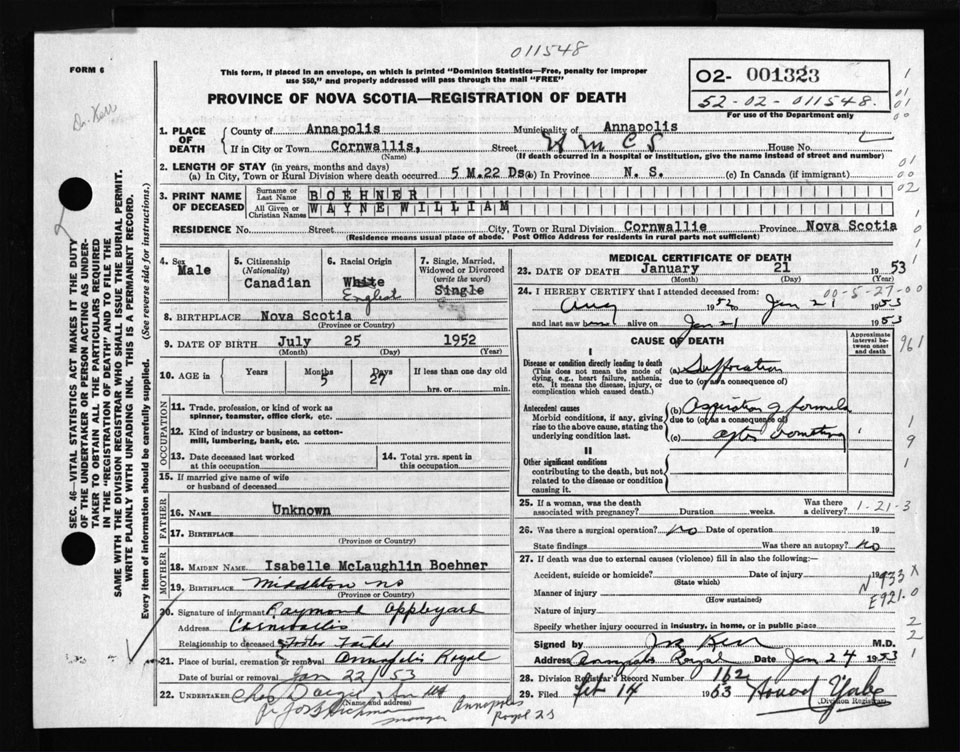 011548
FORM 6
This form, if placed in an envelope, on which is printed "Dominion Statistics—Free, penalty for improper
use $50," and properly addressed will pass through the mail "FREE"
02- 001323
52-02-011548.
For use of the Department only
Dr. Kerr
PROVINCE OF NOVA SCOTIA—REGISTRATION OF DEATH
1. PLACE OF DEATH
County of Annapolis Municipality of Annapolis
If in City or Town Cornwallis, Street House No.
(Name) (If death occurred in a hospital or institution, give the name instead of street and number)
2. LENGTH OF STAY (in years, months and days)
(a) In City, Town or Rural Division where death occurred 5 M.22 Ds (b) In Province N. S. (c) In Canada (if immigrant)
3. PRINT NAME OF DECEASED
Surname or Last Name BOEHNER
All Given or Christian Names WAYNE WILLIAM
RESIDENCE No. Street City, Town or Rural Division Cornwallie Province Nova Scotia
(Residence means usual place of abode. Post Office Address for residents in rural parts not sufficient)
4. Sex Male
5. Citizenship (Nationality) Canadian
6. Racial Origin White English
7. Single, Married, Widowed or Divorced (write the word) Single
8. BIRTHPLACE Nova Scotia
(Province or Country)
9. DATE OF BIRTH July 25 1952
(Month) (Day) (Year)
10. AGE in Years Months 5 Days 27 If less than one day old
hrs. or min.
OCCUPATION
11. Trade, profession, or kind of work as
spinner, teamster, office clerk, etc.
12. Kind of industry or business, as cotton-
mill, lumbering, bank, etc.
13. Date deceased last worked
at this occupation
14. Total yrs. spent in
this occupation
15. If married give name of wife
or husband of deceased
FATHER
16. NAME Unknown
17. BIRTHPLACE
(Province or Country)
MOTHER
18. MAIDEN NAME Isabelle McLaughlin Boehner
19. BIRTHPLACE Middleton NS
(Province or Country)
20. Signature of informant Raymond Appleyard
Address Cornwallis
Relationship to deceased Foster Father
21. Place of burial, cremation or removal Annapolis Royal
Date of burial or removal Jan 22/53
22. UNDERTAKER
(Name and address)
manager Annapolis
Royal
SEC. 46—VITAL STATISTICS ACT MAKES IT THE DUTY
OF THE UNDERTAKER OR PERSON ACTING AS UNDER-
TAKER TO OBTAIN ALL THE PARTICULARS REQUIRED
IN THE "REGISTRATION OF DEATH" AND TO FILE THE
SAME WITH THE DIVISION REGISTRAR WHO SHALL ISSUE THE BURIAL PERMIT.
WRITE PLAINLY WITH UNFADING INK. THIS IS A PERMANENT RECORD.
Every item of information should be carefully supplied. (See reverse side for instructions.)
MEDICAL CERTIFICATE OF DEATH
23. DATE OF DEATH January 21 1953
(Month) (Day) (Year)
00-5-27-00
24. I HEREBY CERTIFY that I attended deceased from:
Aug 1952 to Jan 21 1953
and last saw h alive on Jan 21 1953
CAUSE OF DEATH
Approximate interval between onset and death
961
I
Disease or condition directly leading to death
(This does not mean the mode of
dying, e.g., heart failure, asthenia,
etc. It means the disease, injury, or
complication which caused death.)
(a) Suffocation
due to (or as a consequence of)
Antecedent causes
Morbid conditions, if any, giving
rise to the above cause, stating the
underlying condition last.
(b) Aspiration of formula
due to (or as a consequence of)
(c) after vomiting
II
Other significant conditions
contributing to the death, but not
related to the disease or condition
causing it.
25. If a woman, was the death
associated with pregnancy? Duration weeks. Was there
a delivery? 1-21-3
26. Was there a surgical operation? no Date of operation 19
State findings Was there an autopsy? No
27. If death was due to external causes (violence) fill in also the following:
Accident, suicide or homicide? Date of injury 19
(State which)
N933 X
E921.0
Manner of injury
(How sustained)
Nature of injury
Specify whether injury occurred in industry, in home, or in public place
Signed by Kerr M.D.
Address Annapolis Royal Date Jan 24 1953
28. Division Registrar's Record Number 162
29. Filed Feb 14 1953
(Division Registrar)